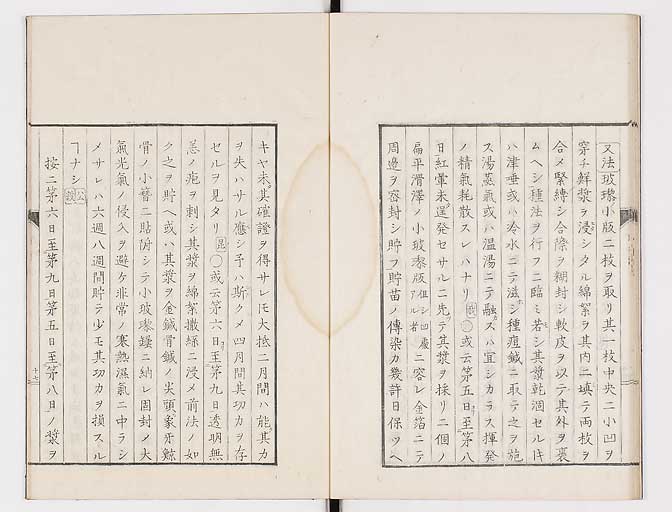 又法玻瓈小版二枚ヲ取リ其一枚中央ニ小凹ヲ
穿チ鮮漿ヲ浸シタル綿絮ヲ其内ニ塡テ両枚ヲ
合メ緊縛シ合際ヲ糊封シ軟皮ヲ以テ其外ヲ裹
ムヘシ種法ヲ行フニ臨ミ若シ其漿乾涸セル𪜈
ハ津唾或ハ冷水ニテ滋シ種痘鍼ニ取テ之ヲ施
ス湯蒸氣或ハ温湯ニテ融スハ宜シカラス揮發
ノ精氣耗散スレハナリ〇或云第五日至第八
日紅暈未遅發セサルニ先テ其漿ヲ採リ二個ノ
扁平滑澤ノ小玻瓈版但シ凹處アル者ニ容レ金箔ニテ
周邉ヲ密封シ貯フ貯苗ノ傳染力幾許日保ツヘ
キヤ未其確證ヲ得サレ𪜈大抵二月間ハ能其力
ヲ失ハサル應シ予ハ斯クメ四月間其功力ヲ存
セルヲ見タリ〇或云第六日至第九日透明無
恙ノ疱ヲ刺シ其漿ヲ綿絮撒綠ニ浸メ前法ノ如
ク之ヲ貯ヘ或ハ其漿ヲ金鍼骨鍼ノ尖頭象牙鯨
骨ノ小簪ニ貼附シテ小玻瓈罎ニ納レ固封メ大
氣光氣ノ侵入ヲ避ケ非常ノ寒熱濕氣ニ中ラシ
メサレハ六週八週間貯テ少モ其功力ヲ損スル
ヿナシ
按ニ第六日至第九日第五日至第八日ノ漿ヲ